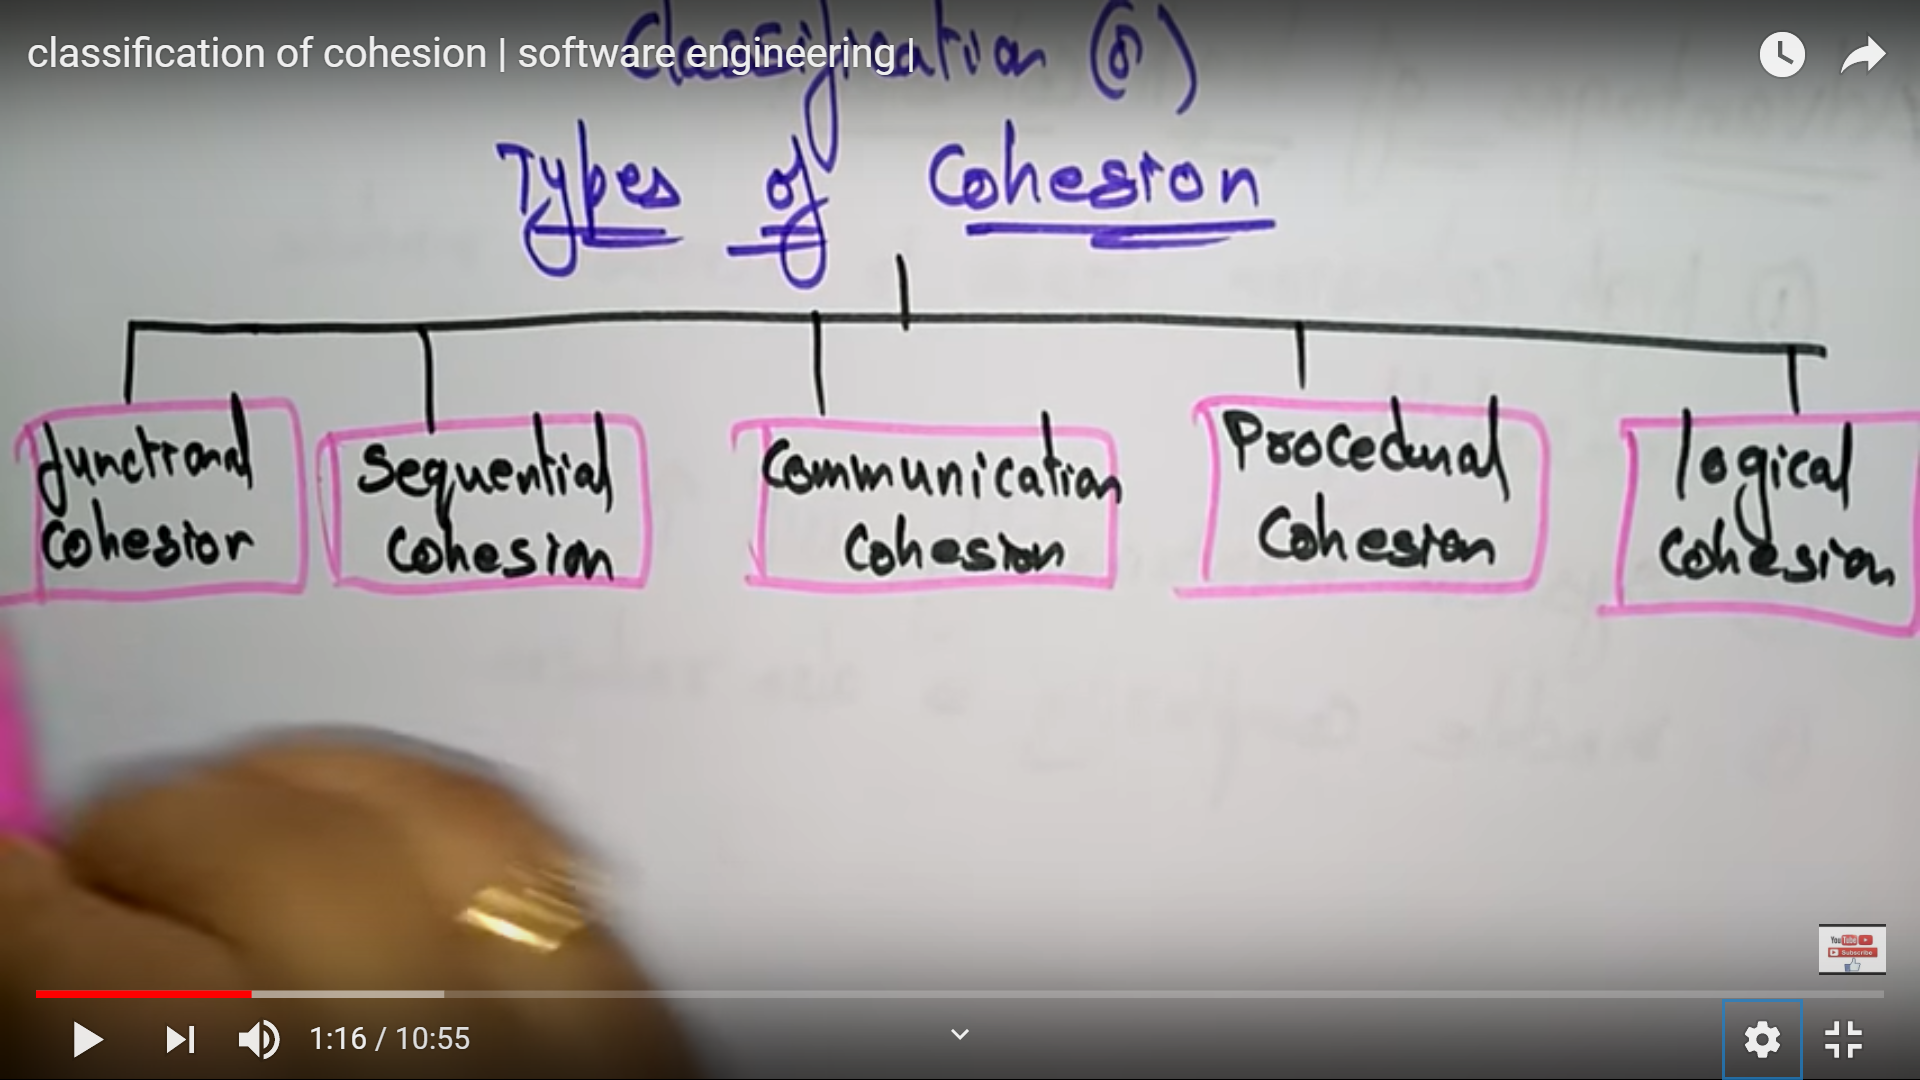 classification of cohesion | software engineering |
Classification (or)
Types of Cohesion
functional
cohesion
Sequential
Cohesion
Communication
Cohesion
Procedural
Cohesion
logical
Cohesion
YouTube
Subscribe
1:16 / 10:55